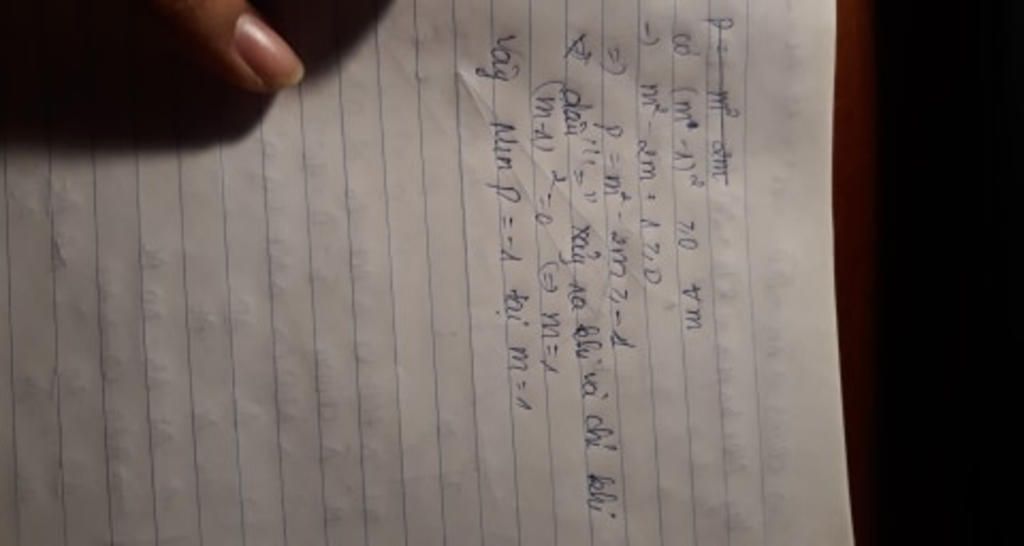 P = m² 2m
có (m-1)² ≥0 ∀m
→ m² - 2m + 1 ≥ 0
=) P = m² - 2m ≥ -1
dấu "=" xảy ra khi và chỉ khi
(m-1)² = 0 (=) m=1
Vậy Min P = -1 tại m = 1